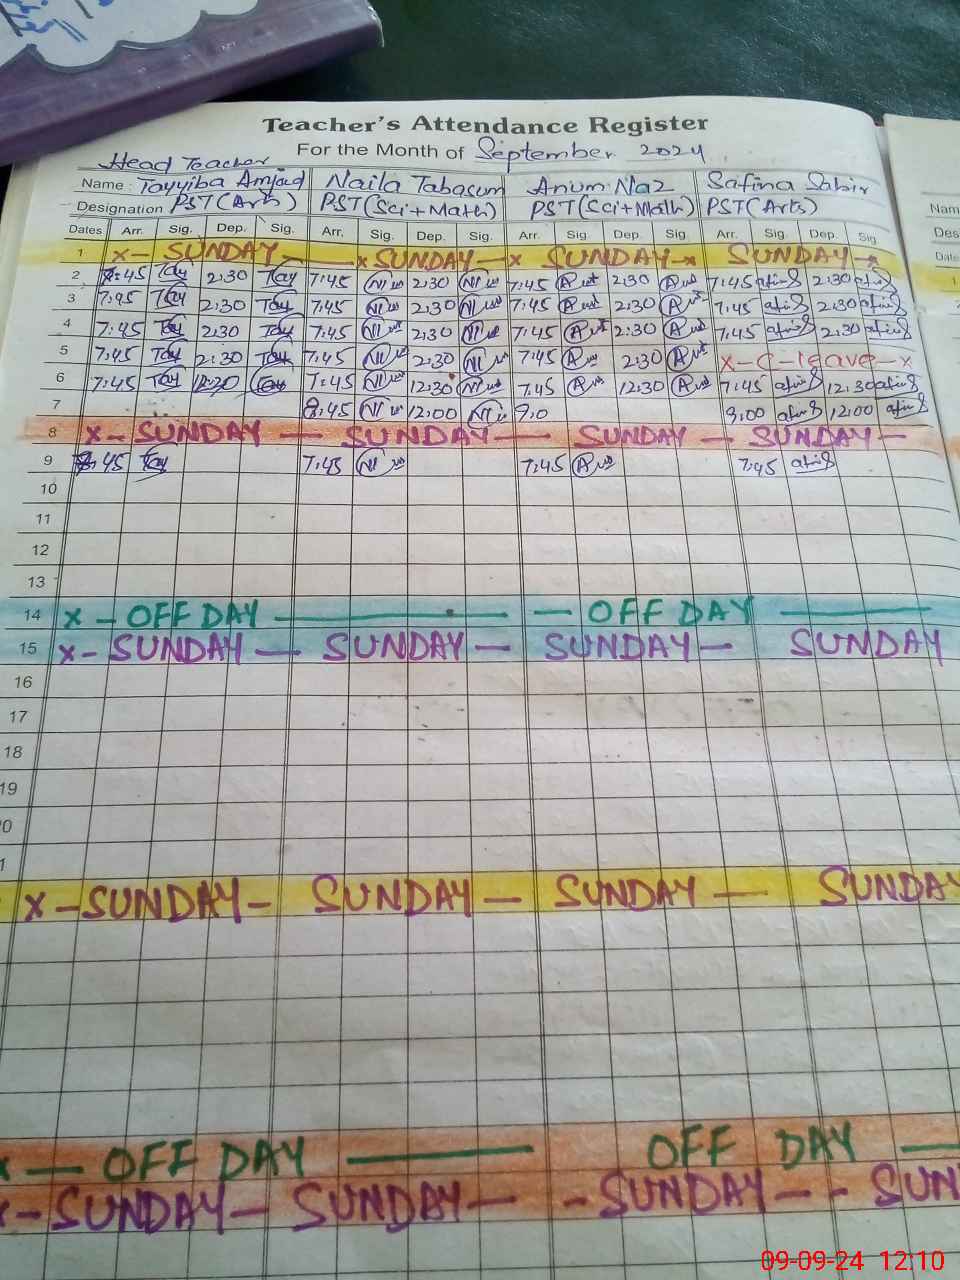 Teacher's Attendance Register
For the Month of September 2024
Head Teacher
Name : Tayyiba Amjad Naila Tabasum Anum Naz Safina Sabir
Designation PST(Arts) PST(Sci+Math) PST(Sci+Math) PST(Arts)
Dates Arr. Sig. Dep. Sig. Arr. Sig. Dep. Sig. Arr. Sig. Dep. Sig. Arr. Sig. Dep. Sig.
1 x- SUNDAY x SUNDAY -x SUNDAY -x SUNDAY -x
2 7:45 Tay 2:30 Tay 7:45 2:30 7:45 2:30 7:45 2:30
3 7:45 Tay 2:30 Tay 7:45 2:30 7:45 2:30 7:45 2:30
4 7:45 Tay 2:30 Tay 7:45 2:30 7:45 2:30 7:45 2:30
5 7:45 Tay 2:30 Tay 7:45 2:30 7:45 2:30 x-C-leave-x
6 7:45 Tay 12:30 Tay 7:45 12:30 7:45 12:30 7:45 12:30
7 8:45 12:00 9:0 9:00 12:00
8 x- SUNDAY — SUNDAY — SUNDAY — SUNDAY —
9 7:45 Tay 7:45 7:45 7:45
10
11
12
13
14 x - OFF DAY — — OFF DAY —
15 x- SUNDAY — SUNDAY — SUNDAY — SUNDAY
16
17
18
19
x -SUNDAY- SUNDAY — SUNDAY — SUNDAY
x — OFF DAY — OFF DAY —
x- SUNDAY — SUNDAY — -SUNDAY - - SUN
Nam
Des
Date
09-09-24 12:10